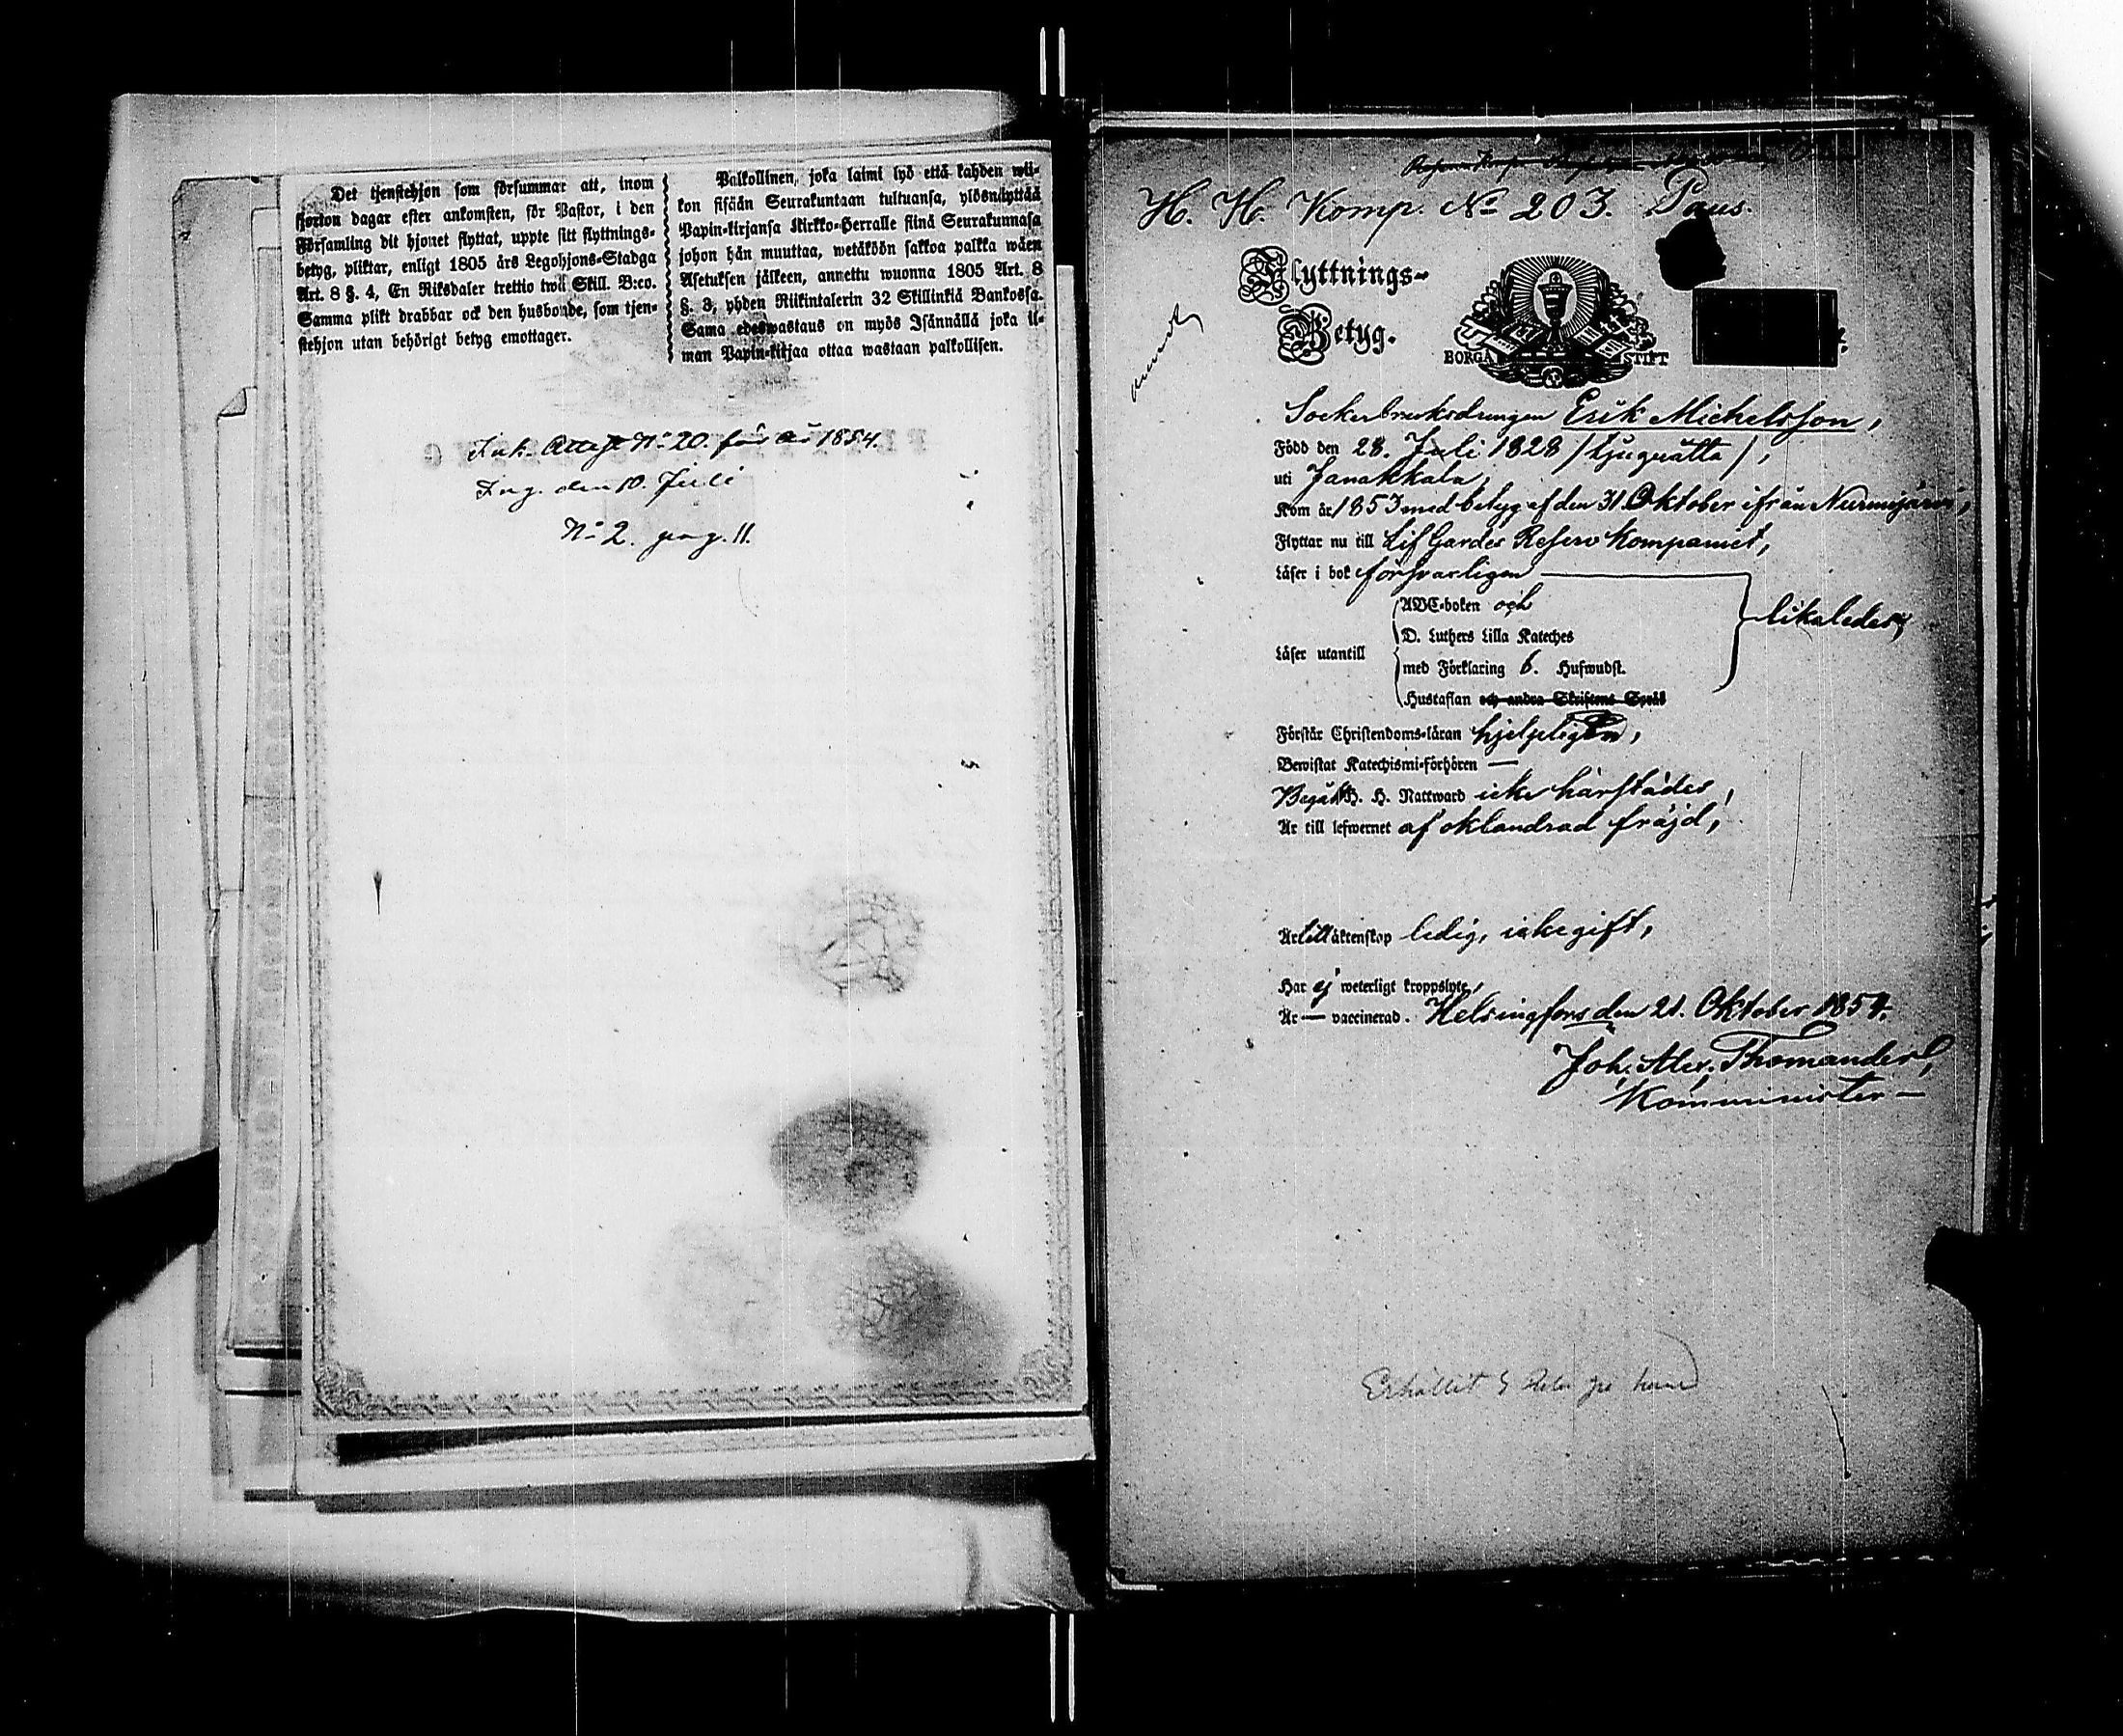 Det tjenstehjon som försummar att, inom
fjorton dagar efter ankomsten, för Pastor, i den
Församling dit hjonet flyttat, uppte sitt flyttnings-
betyg, pliktar, enligt 1805 års Legohjons-Stadga
Art. 8 §. 4, En Riksdaler trettio twå Skill. B:co.
Samma plikt drabbar ock den husbonde, som tjen-
stehjon utan behörigt betyg emottager.
Palkollinen, joka laimi lyö että kahden wii-
kon sisään Seurakuntaan tultuansa, ylösnäyttää
Papin-kirjansa Kirkko-Herralle siinä Seurakunnasa
johon hän muuttaa, wetäköön sakkoa palkka wäen
Asetuksen jälkeen, annettu wuonna 1805 Art. 8
§. 3, yhden Riikintalerin 32 Skillinkiä Bankossa.
Sama edeswastaus on myös Isännällä joka il-
man Papin-kirjaa ottaa wastaan palkollisen.
Ink. Attest No 20. för år 1854.
Ing. den 10. Juli
No 2. pag. 11.
H. H. Komp. No 203. Paus.
Flyttnings-
Betyg.
BORGÅ STIFT
Sockerbruksdrängen Erik Michelsson,
Född den 28. Juli 1828 / tjuguåtta /,
uti Janakkala,
Kom år 1853 med betyg af den 31 Oktober ifrån Nurmijärvi,
Flyttar nu till Lif Gardes Reserv Kompaniet,
Läser i bok försvarligen
ABC-boken och
D. Luthers Lilla Kateches
Läser utantill
med Förklaring 6. Hufwudst.
Hustaflan och andra Skriftens Språk
likaledes,
Förstår Christendoms-läran hjelpeligen,
Bewistat Katechismi-förhören —
Begått H. H. Nattward icke härstädes,
Är till lefwernet af oklandrad fräjd,
Är till äktenskap ledig, icke gift,
Har ej weterligt kroppslyte,
Är — vaccinerad. Helsingfors den 21. Oktober 1854.
Joh. Alex. Thomander,
Komminister —
Erhållit